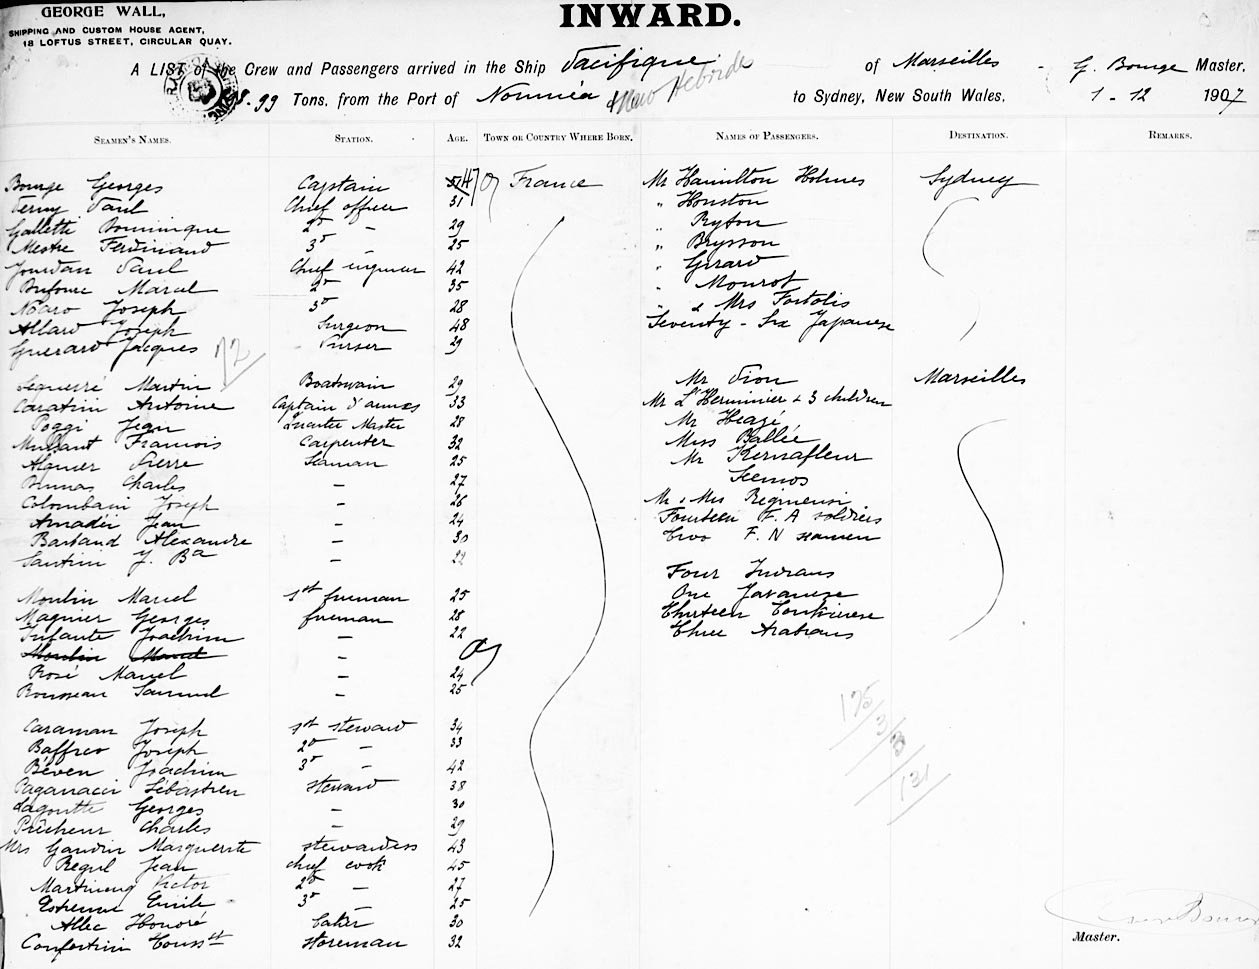 GEORGE WALL,
SHIPPING AND CUSTOM HOUSE AGENT,
18 LOFTUS STREET, CIRCULAR QUAY.
INWARD.
A LIST of the Crew and Passengers arrived in the Ship Pacifique of Marseilles - G. Bourge Master,
99 Tons, from the Port of Nouméa & New Hebrides to Sydney, New South Wales, 1 - 12 1907
SEAMEN'S NAMES. STATION. AGE. TOWN OR COUNTRY WHERE BORN. NAMES OF PASSENGERS. DESTINATION. REMARKS.
Bourge Georges Captain 47 France Mr Hamilton Holmes Sydney
Paul Chief officer 31 " Houston
Galletti Dominique 2d - 29 " Ryton
Mestre Ferdinand 3d - 25 " Brysson
Jourdan Paul Chief engineer 42 " Girard
Dufour Marcel 2d 35 " Mourot
Naro Joseph 3d 28 " & Mrs Fortolis
Allard Joseph Surgeon 48 Seventy-Six Japanese
Guerard Jacques Purser 29
72
Martin Boatswain 29 Mr Pion Marseilles
Caratini Antoine Captain d'armes 33 Mr L'Herminier & 3 children
Poggi Jean Quarter Master 28 Mr
Mulsant Francois Carpenter 32 Miss Ballée
Pierre Seaman 25 Mr Kernafleur
Brunas Charles - 27
Colombani Joseph - 26 Mr & Mrs
Amadéi Jean - 24 Fourteen F. A soldiers
Bartaud Alexandre - 30 Two F. N seamen
Santini J. Ba - 22
Four Indians
Moulin Marcel 1st fireman 25 One Javanese
Magnier Georges fireman 28 Thirteen Tonkinese
Infante Joachim - 22 Three Arabians
Moulin Marcel -
Rosé Marcel - 24
Rousseau Samuel - 25
175
3
3
131
Caraman Joseph 1st steward 34
Baffreo Joseph 2d - 33
Béven Joachim 3d - 42
Paganacci Sébastien steward 38
Lagoutte Georges - 30
Prêcheur Charles - 29
Mrs Gaudin Marguerite stewardess 43
Regul Jean chief cook 45
Martineng Victor 2d - 27
Estienne Emile 3d - 25
Allec Honoré baker 30
Confortini Tousst storeman 32
Master.